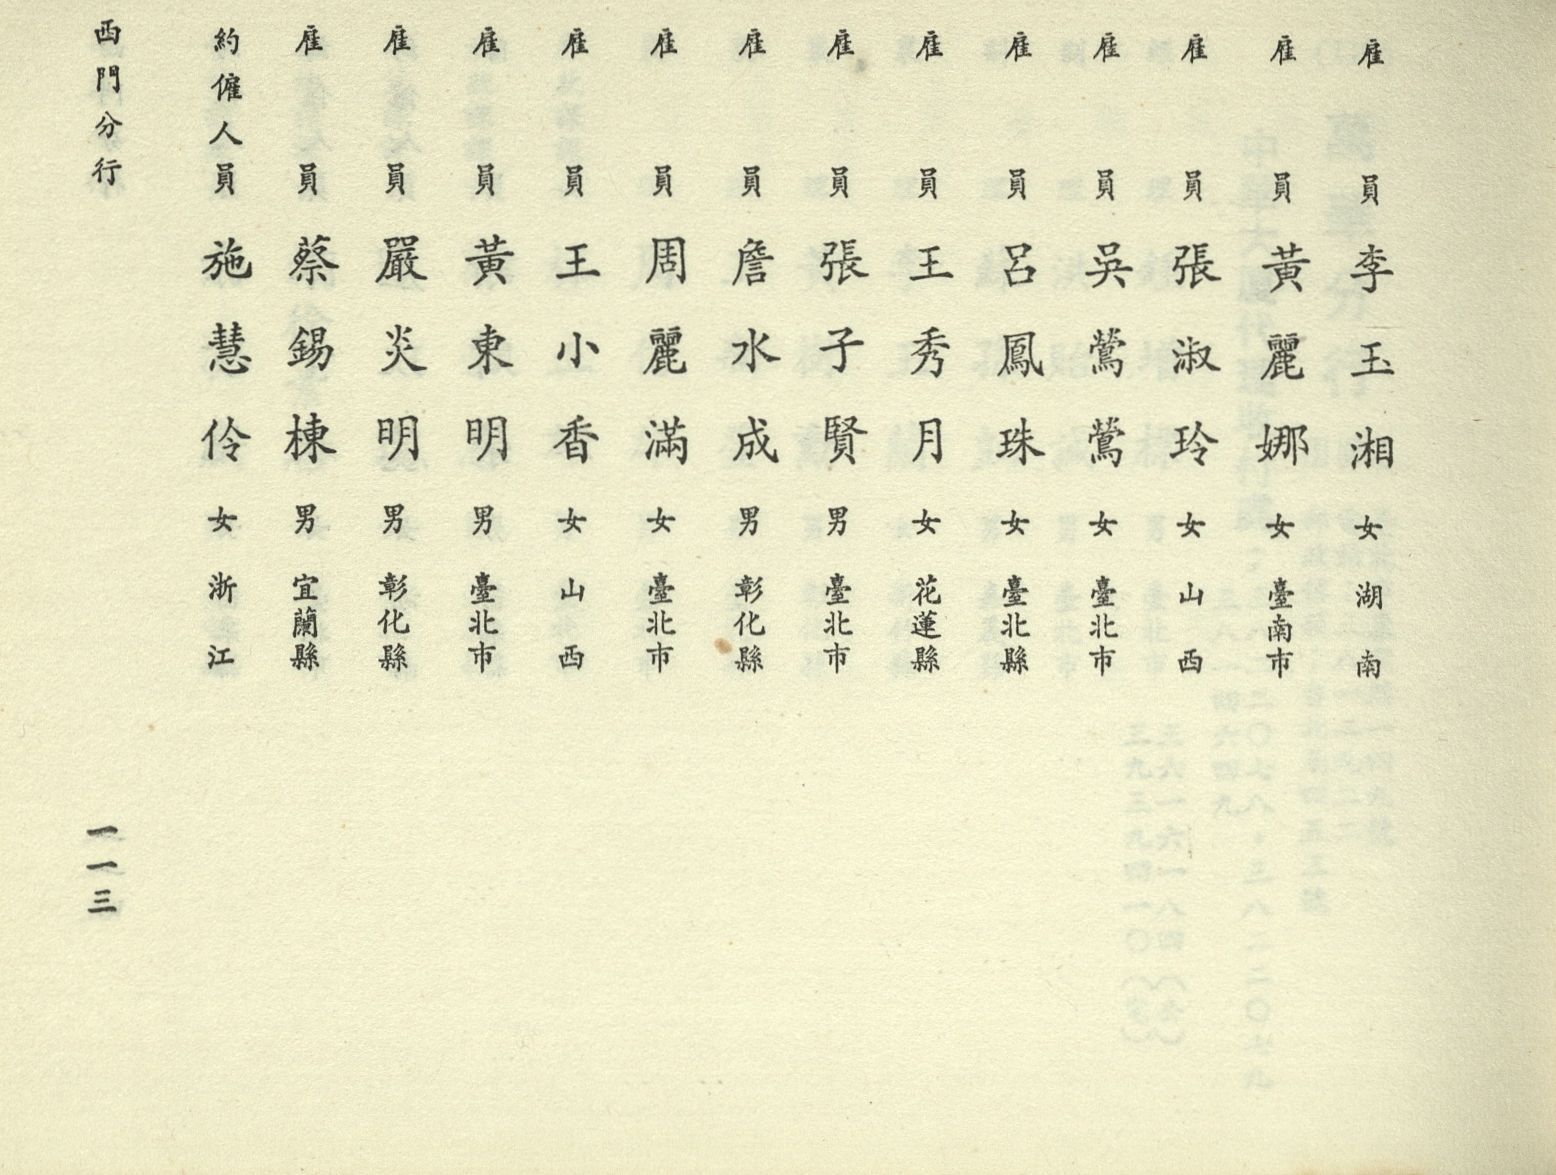 雇員李玉湘女湖南
雇員黃麗娜女臺南市
雇員張淑玲女山西
雇員吳鶯鶯女臺北市
雇員呂鳳珠女臺北縣
雇員王秀月女花蓮縣
雇員張子賢男臺北市
雇員詹水成男彰化縣
雇員周麗滿女臺北市
雇員王小香女山西
雇員黃東明男臺北市
雇員嚴炎明男彰化縣
雇員蔡錫棟男宜蘭縣
約僱人員施慧伶女浙江
西門分行
一一三